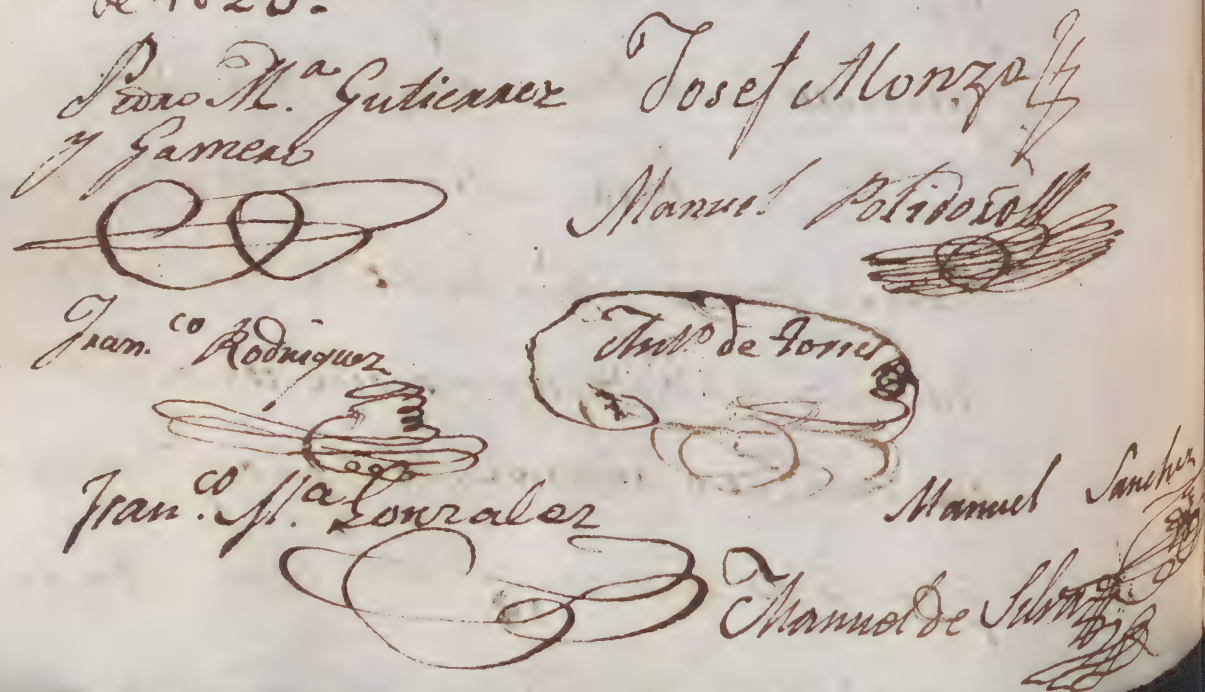 de 1820.
Pedro M.ª Gutierrez
y Gamero
Josef Alonzo
Manuel Polidoro
Fran.co Rodriguez
Ant.o de Torres
Fran.co M.ª Gonzalez
Manuel Sanchez
Manuel de Silva